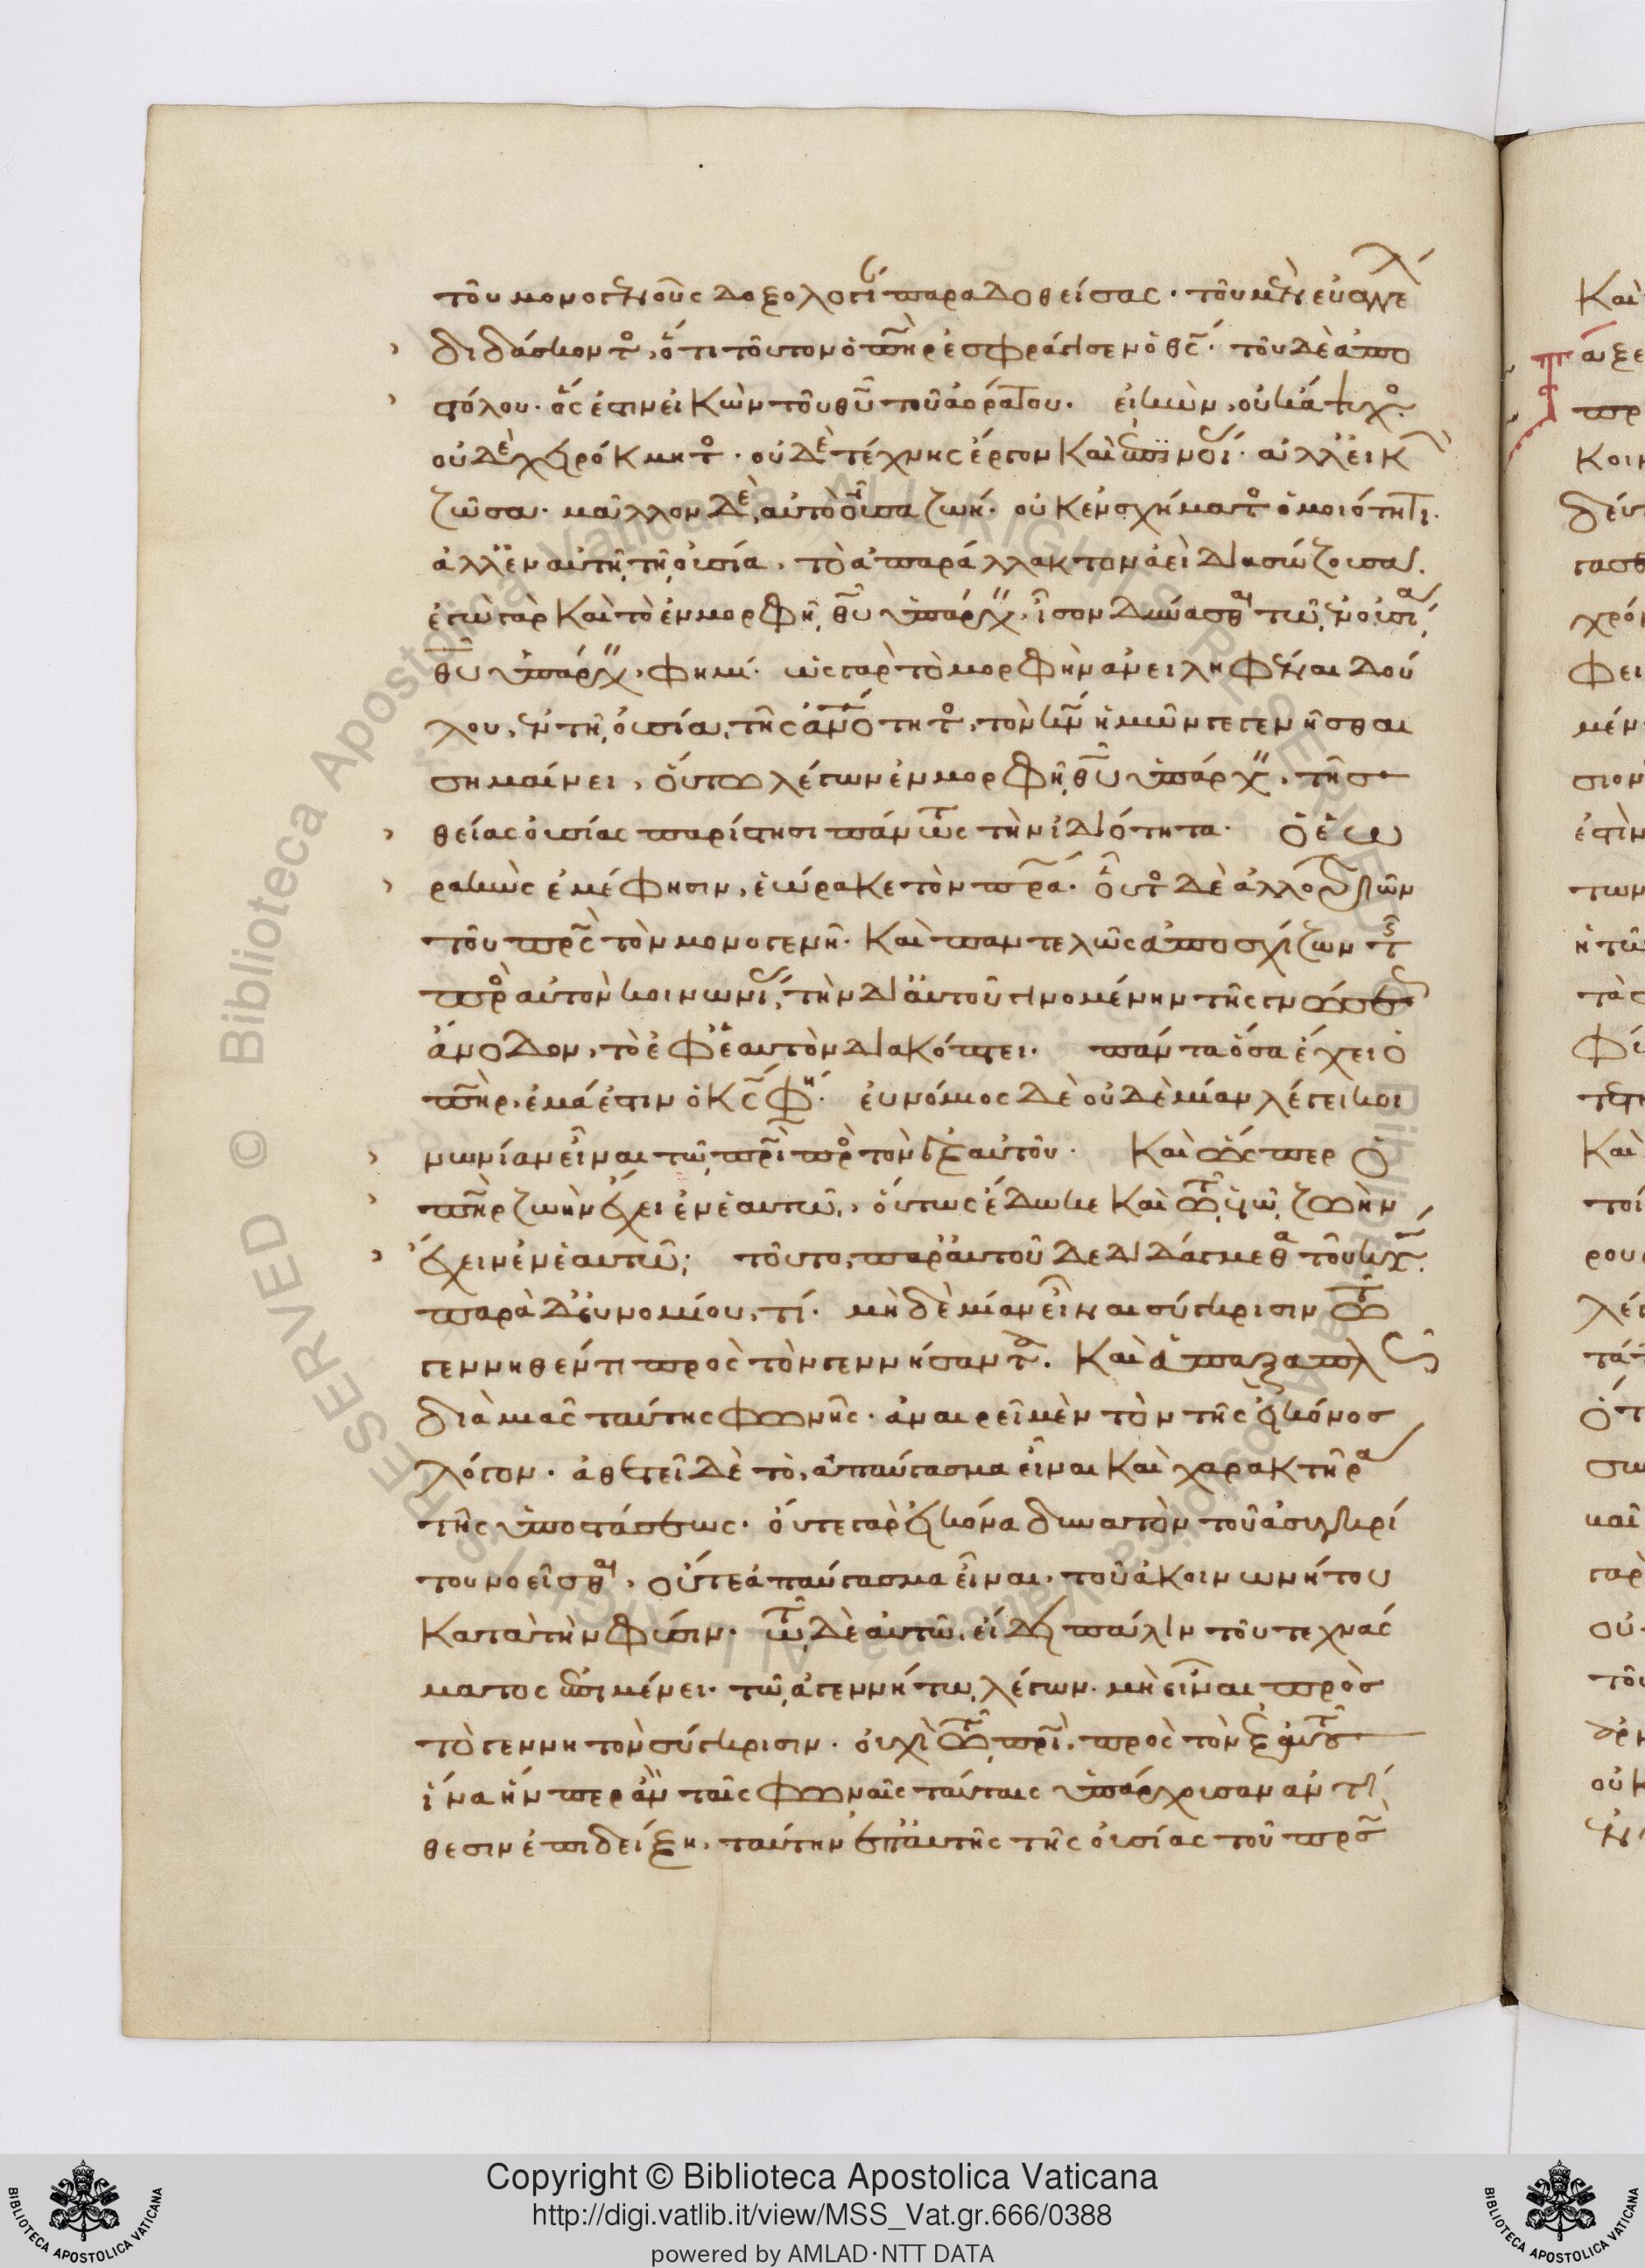 τοῦ μονογενοῦς δοξολογίας παραδοθείσας· τοῦ μὲν εὐαγγελ
διδάσκοντος, ὅτι τοῦτον ὁ πηρ ἐσφράγισεν ὁ θς· τοῦ δὲ ἀπο
στόλου· ὅς ἐστιν εἰκὼν τοῦ θυ τοῦ ἀοράτου. εἰκὼν, οὐκ ἄψυχος·
οὐδὲ χερόκμητος· οὐδὲ τέχνης ἔργον καὶ ἐπινοίας· ἀλλ' εἰκὼν
ζῶσα· μᾶλλον δὲ, αὐτοοῦσα ζωή· οὐκ ἐν σχήματος ὁμοιότητι·
ἀλλ' ἐν αὐτῇ τῇ οὐσίᾳ, τὸ ἀπαράλλακτον ἀεὶ διασώζουσα.
ἐγὼ γὰρ καὶ τὸ ἐν μορφῇ θυ ὑπάρχειν, ἴσον δύνασθαι τῷ ἐν οὐσίᾳ
θυ ὑπάρχειν, φημί· ὡς γὰρ τὸ μορφὴν ἀνειληφέναι δού
λου, ἐν τῇ οὐσίᾳ τῆς ἀνότητος, τὸν κν ἡμῶν γεγενῆσθαι
σημαίνει, οὕτω λέγων ἐν μορφῇ θυ ὑπάρχειν, τῆς
θείας οὐσίας παρίστησι πάντως τὴν ἰδιότητα· ὁ ἑω
ρακὼς ἐμέ φησιν, ἑώρακε τὸν πρα· οὗτος δὲ ἀλλοτριῶν
τοῦ πρς τὸν μονογενῆ· καὶ παντελῶς ἀποσχίζων τῆς
πρὸς αὐτὸν κοινωνίας, τὴν δι' αὐτοῦ γινομένην τῆς γνώσεως
ἄνοδον, τὸ ἐφ' ἑαυτὸν διακόπτει· πάντα ὅσα ἔχει ὁ
πηρ, ἐμά ἐστιν ὁ κς φη· εὐνόμιος δὲ οὐδὲ μίαν λέγει κοι
νωνίαν εἶναι τῷ πρι πρὸς τὸν ἐξ αὐτοῦ· καὶ ὥσπερ ὁ
πηρ ζωὴν ἔχει ἐν ἑαυτῷ, οὕτως ἔδωκε καὶ τῷ υἱῷ ζωὴν
ἔχειν ἐν ἑαυτῷ; τοῦτο, παρ' αὐτοῦ δεδιδάγμεθα τοῦ κυ·
παρὰ δ' εὐνομίου, τί· μὴδὲ μίαν εἶναι σύγκρισιν τῷ
γεννηθέντι πρὸς τὸν γεννήσαντα· καὶ ἁπαξαπλῶς
διὰ μιᾶς ταύτης φωνῆς· ἀναιρεῖ μὲν τὸν τῆς εἰκόνος
λόγον· ἀθετεῖ δὲ τὸ, ἀπαύγασμα εἶναι καὶ χαρακτῆρα
τῆς ὑποστάσεως· οὔτε γὰρ εἰκόνα δυνατὸν τοῦ ἀσυγκρί
του νοεῖσθαι, οὔτε ἀπαύγασμα εἶναι, τοῦ ἀκοινωνήτου
κατὰ τὴν φύσιν· τῷ δὲ αὐτῷ εἴδει πάλιν τοῦ τεχνάσ
ματος ἐπιμένει· τῷ ἀγεννήτῳ λέγων· μὴ εἶναι πρὸς
τὸ γεννητὸν σύγκρισιν· οὐχὶ τῷ πρι, πρὸς τὸν ἐξ αὐτοῦ
ἵνα ἥνπερ ἂν ταῖς φωναῖς ταύταις ὑπάρχουσαν ἀντί
θεσιν ἐπιδείξῃ, ταύτην ἐπ' αὐτῆς τῆς οὐσίας τοῦ πρς
Copyright © Biblioteca Apostolica Vaticana
http://digi.vatlib.it/view/MSS_Vat.gr.666/0388
powered by AMLAD·NTT DATA